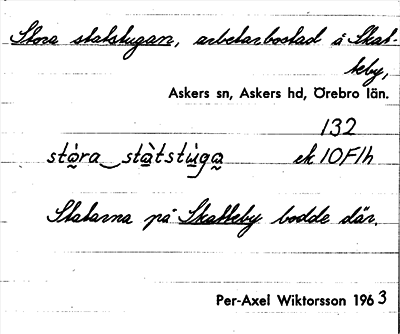 Stora statstugan, arbetarbostad å Skat-
teby,
Askers sn, Askers hd, Örebro län.
132
stó̰ra‿stàtstùga̰ ek 10F1h
Statarna på Skatteby bodde där.
Per-Axel Wiktorsson 1963